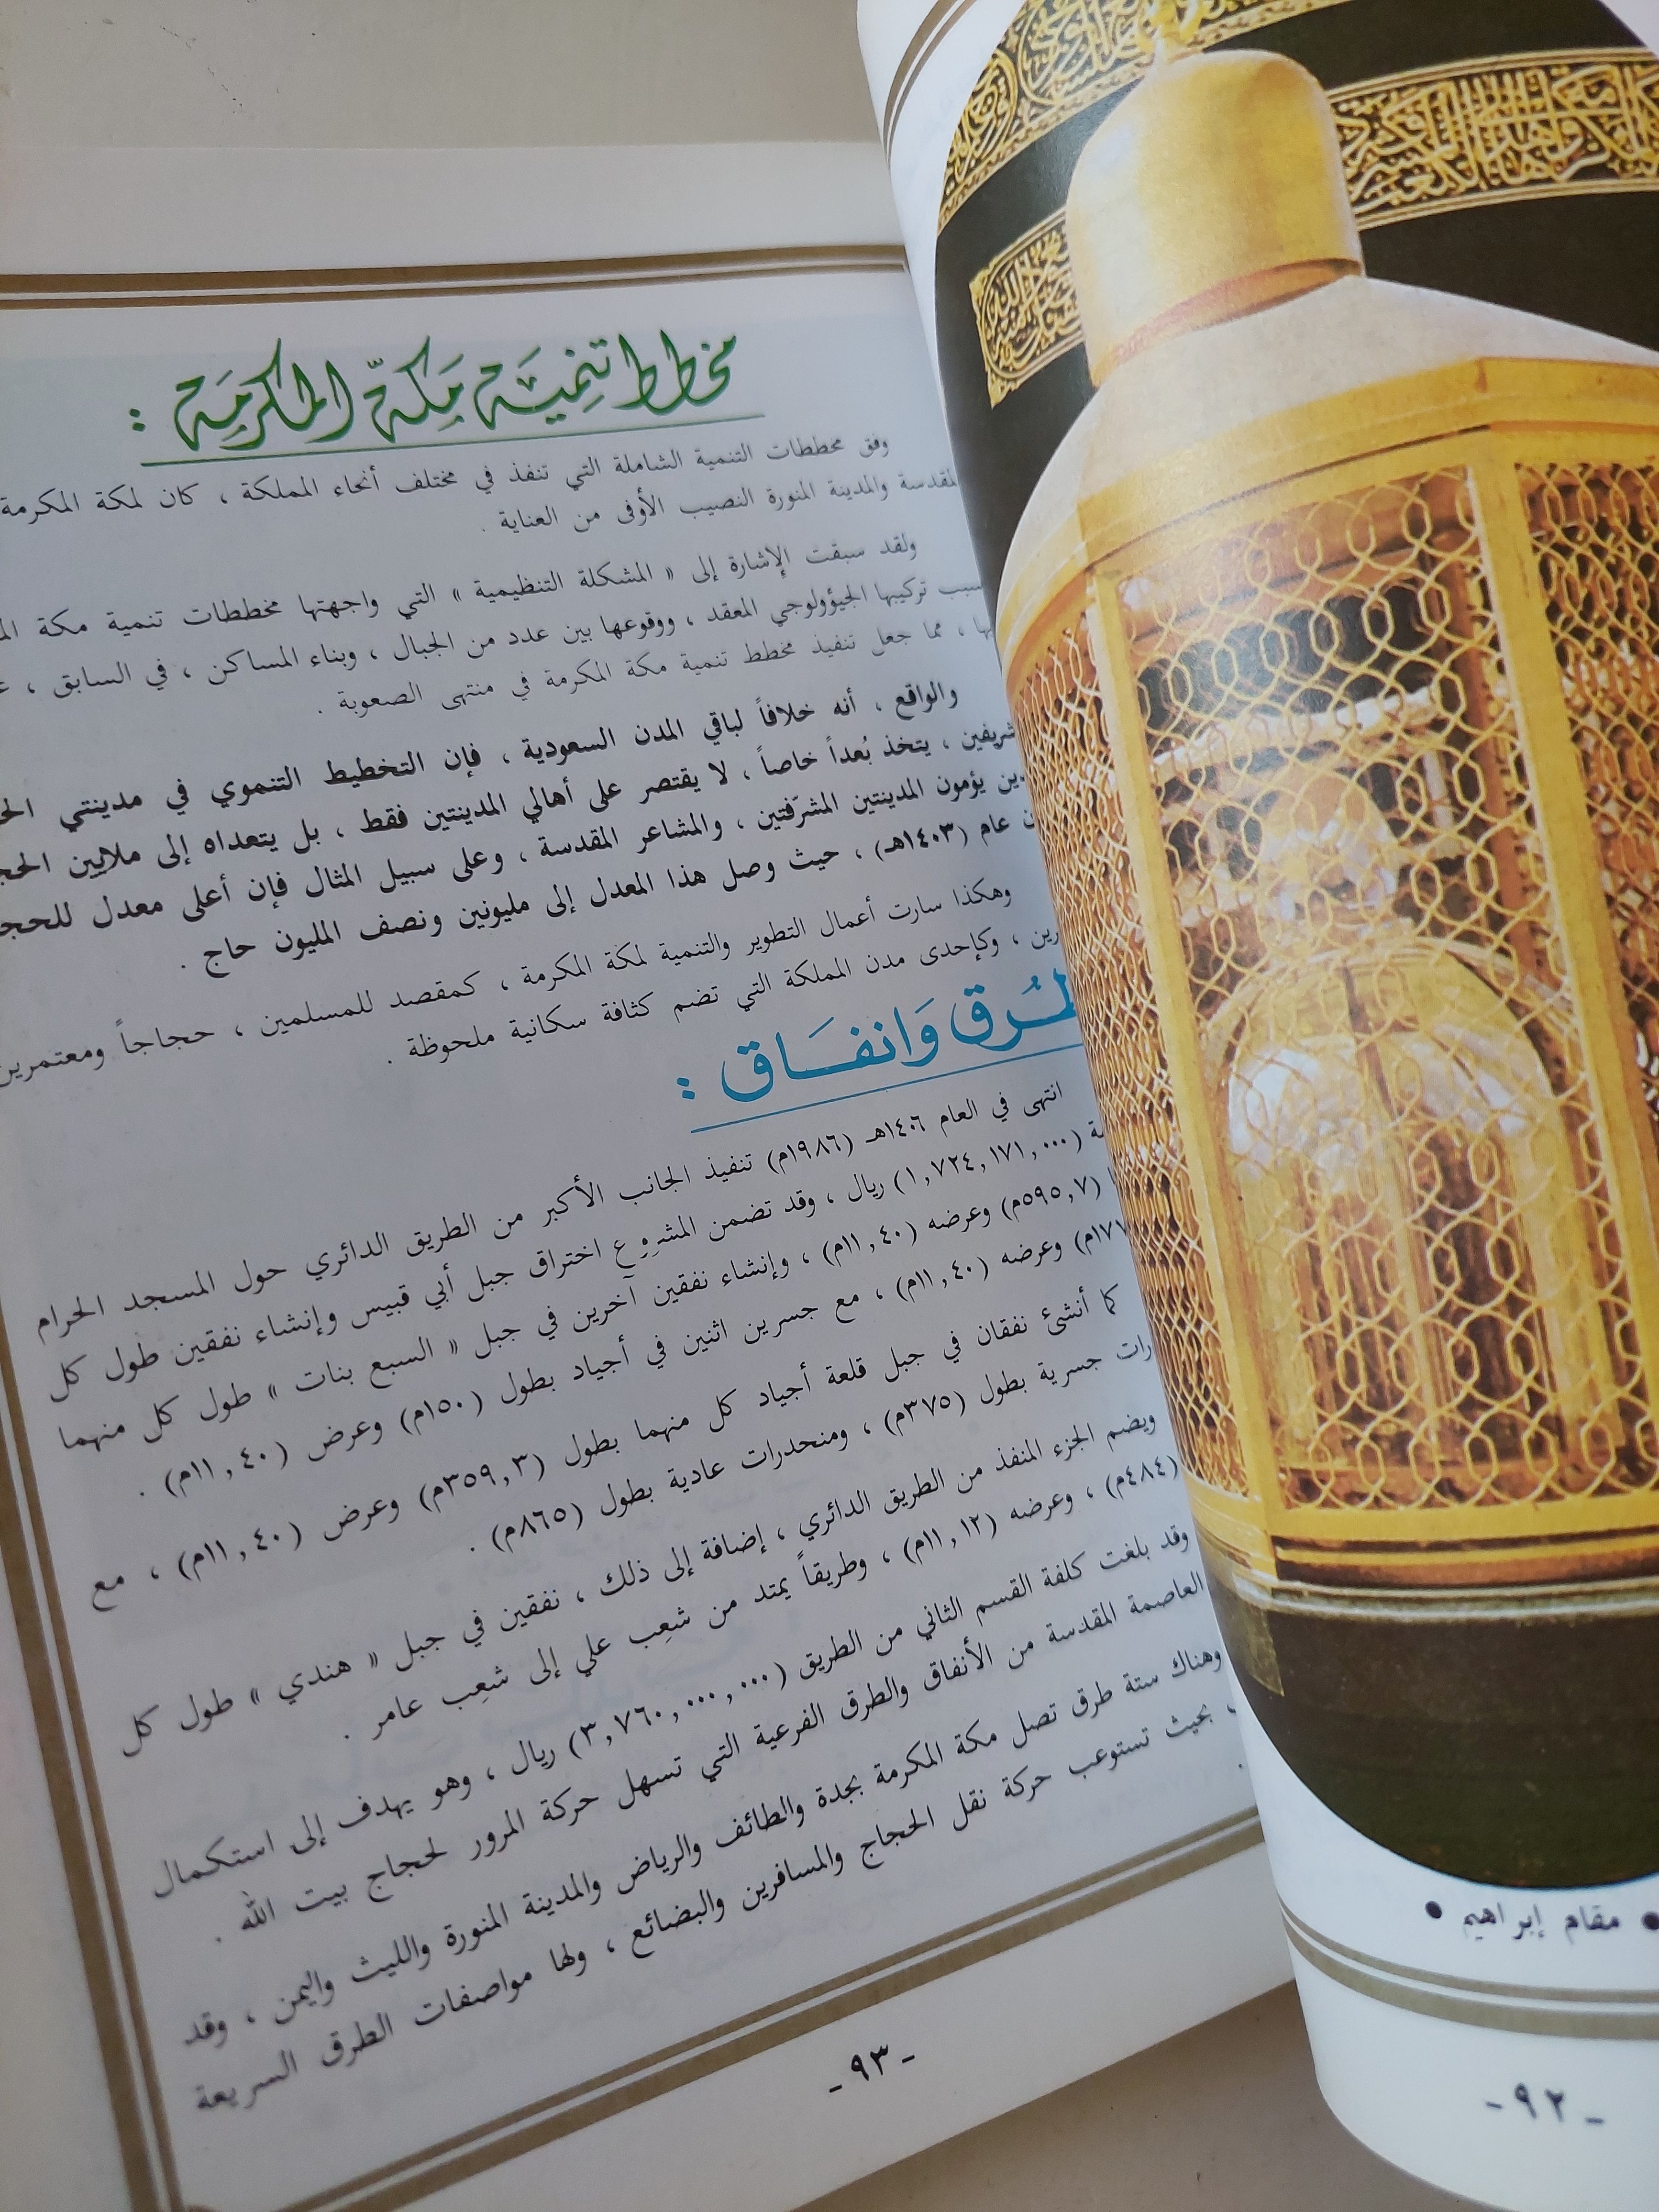 مخطط تنمية مكة المكرمة :
وفق مخططات التنمية الشاملة التي تنفذ في مختلف أنحاء المملكة ، كان لمكة المكرمة
والمدينة المنورة النصيب الأوفى من العناية .
ولقد سبقت الإشارة إلى « المشكلة التنظيمية » التي واجهتها مخططات تنمية مكة
تركيبها الجيؤولوجي المعقد ، ووقوعها بين عدد من الجبال ، وبناء المساكن ، في السابق ،
، مما جعل تنفيذ مخطط تنمية مكة المكرمة في منتهى الصعوبة .
والواقع ، أنه خلافاً لباقي المدن السعودية ، فإن التخطيط التنموي في مدينتي
، يتخذ بُعداً خاصاً ، لا يقتصر على أهالي المدينتين فقط ، بل يتعداه إلى ملايين
يؤمون المدينتين المشرّفتين ، والمشاعر المقدسة ، وعلى سبيل المثال فإن أعلى معدل
عام (١٤٠٣هـ) ، حيث وصل هذا المعدل إلى مليونين ونصف المليون حاج .
وهكذا سارت أعمال التطوير والتنمية لمكة المكرمة ، كمقصد للمسلمين ، حجاجاً ومعتمرين
، وكإحدى مدن المملكة التي تضم كثافة سكانية ملحوظة .
وَانفَاق :
انتهى في العام ١٤٠٦هـ (١٩٨٦م) تنفيذ الجانب الأكبر من الطريق الدائري حول المسجد الحرام
(١,٧٢٤,١٧١,٠٠٠) ريال ، وقد تضمن المشروع اختراق جبل أبي قبيس وإنشاء نفقين طول كل
(٥٩٥,٧م) وعرضه (١١,٤٠م) ، وإنشاء نفقين آخرين في جبل « السبع بنات » طول كل منهما
وعرضه (١١,٤٠م) ، مع جسرين اثنين في أجياد بطول (١٥٠م) وعرض (١١,٤٠م) .
كما أنشئ نفقان في جبل قلعة أجياد كل منهما بطول (٣٥٩,٣م) وعرض (١١,٤٠م) ، مع
جسرية بطول (٣٧٥م) ، ومنحدرات عادية بطول (٨٦٥م) .
ويضم الجزء المنفذ من الطريق الدائري ، إضافة إلى ذلك ، نفقين في جبل « هندي » طول كل
(٤٨٤م) ، وعرضه (١١,١٢م) ، وطريقاً يمتد من شعِب علي إلى شعِب عامر .
وقد بلغت كلفة القسم الثاني من الطريق (٣,٧٦٠,٠٠٠,٠٠٠) ريال ، وهو يهدف إلى استكمال
العاصمة المقدسة من الأنفاق والطرق الفرعية التي تسهل حركة المرور لحجاج بيت الله .
وهناك ستة طرق تصل مكة المكرمة بجدة والطائف والرياض والمدينة المنورة والليث واليمن ، وقد
بحيث تستوعب حركة نقل الحجاج والمسافرين والبضائع ، ولها مواصفات الطرق السريعة
- ٩٣ -
● مقام إبراهيم ●
- ٩٢ -